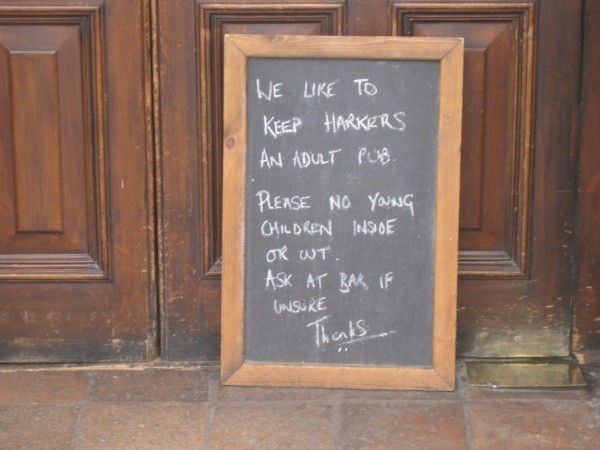 WE LIKE TO
KEEP HARKERS
AN ADULT PUB.
PLEASE NO YOUNG
CHILDREN INSIDE
OR OUT.
ASK AT BAR IF
UNSURE
Thanks